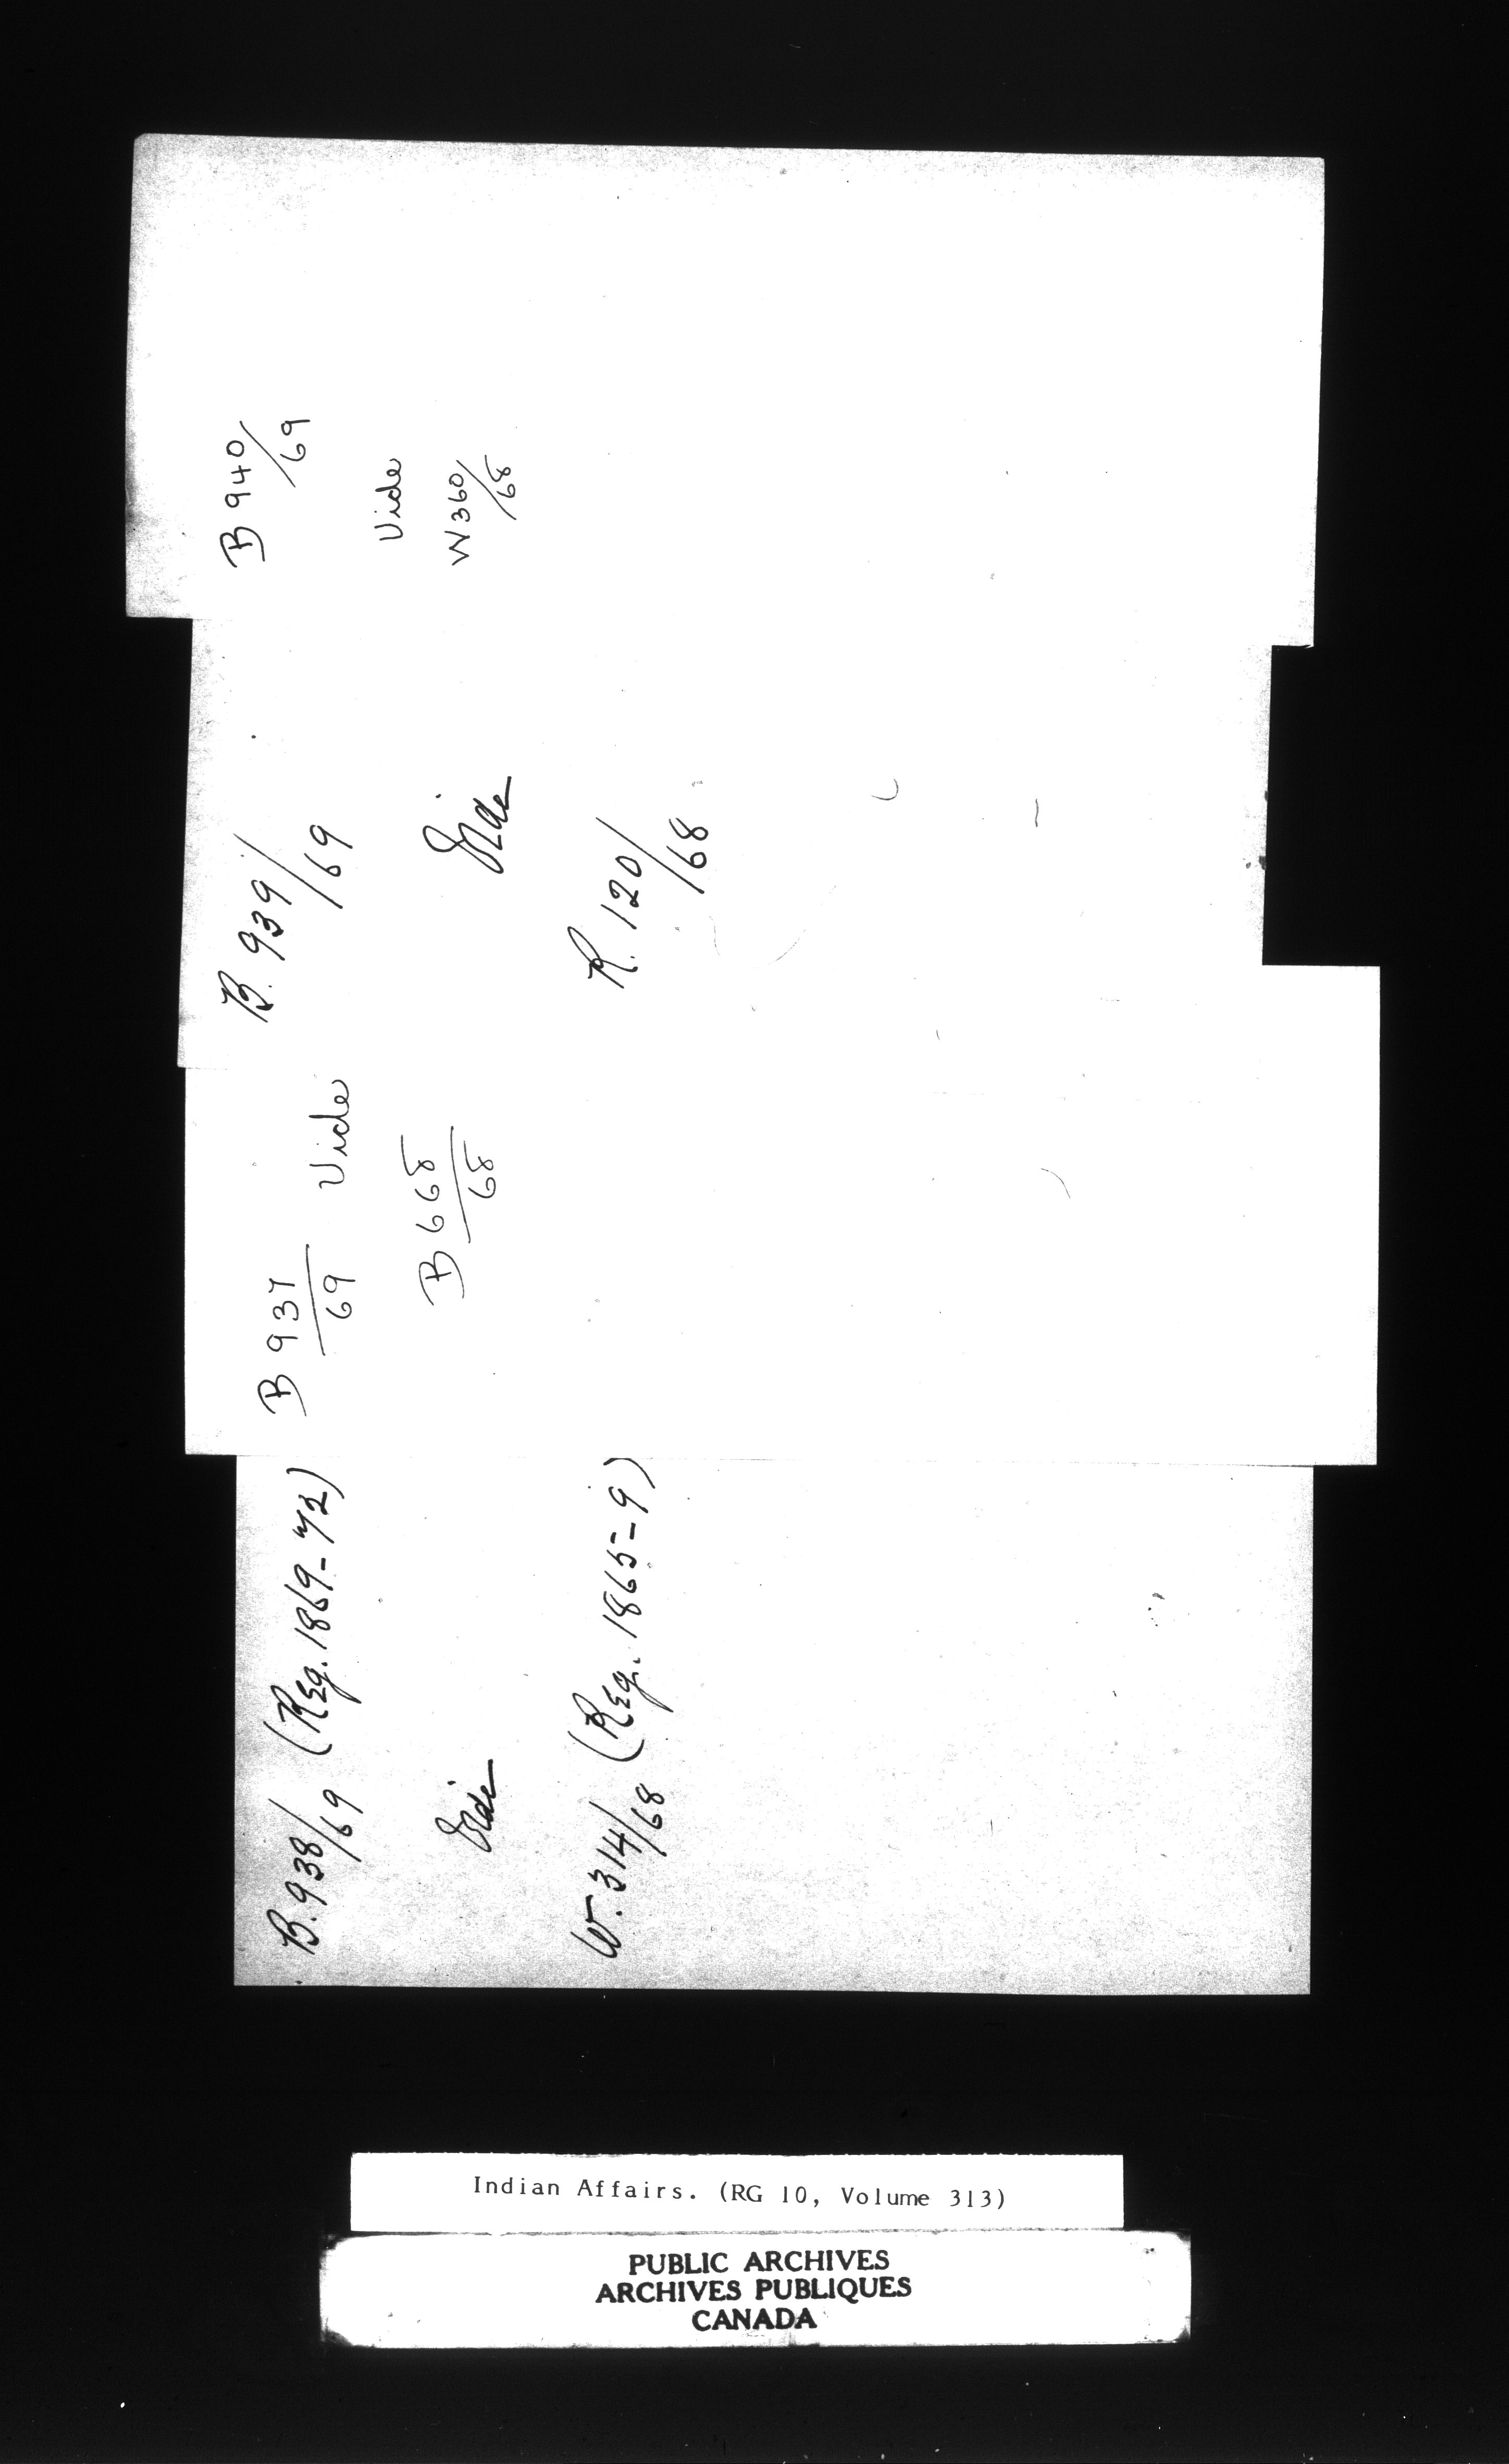 B 940/69
Vide
W 360/68
B. 939/69
Vide
R. 120/68
B 937/69 Vide
B 668/68
B. 938/69 (Reg. 1869-72)
Vide
W. 314/68 (Reg. 1865-9)
Indian Affairs. (RG 10, Volume 313)
PUBLIC ARCHIVES
ARCHIVES PUBLIQUES
CANADA